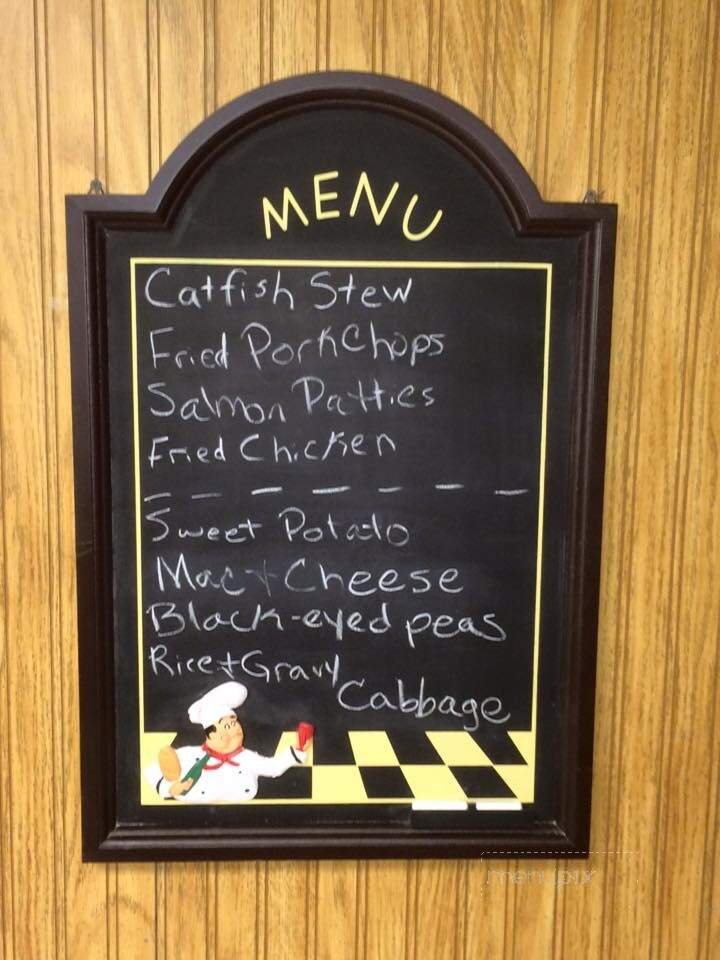 MENU
Catfish Stew
Fried Pork Chops
Salmon Patties
Fried Chicken
Sweet Potato
Mac + Cheese
Black-eyed peas
Rice + Gravy
Cabbage
menupix